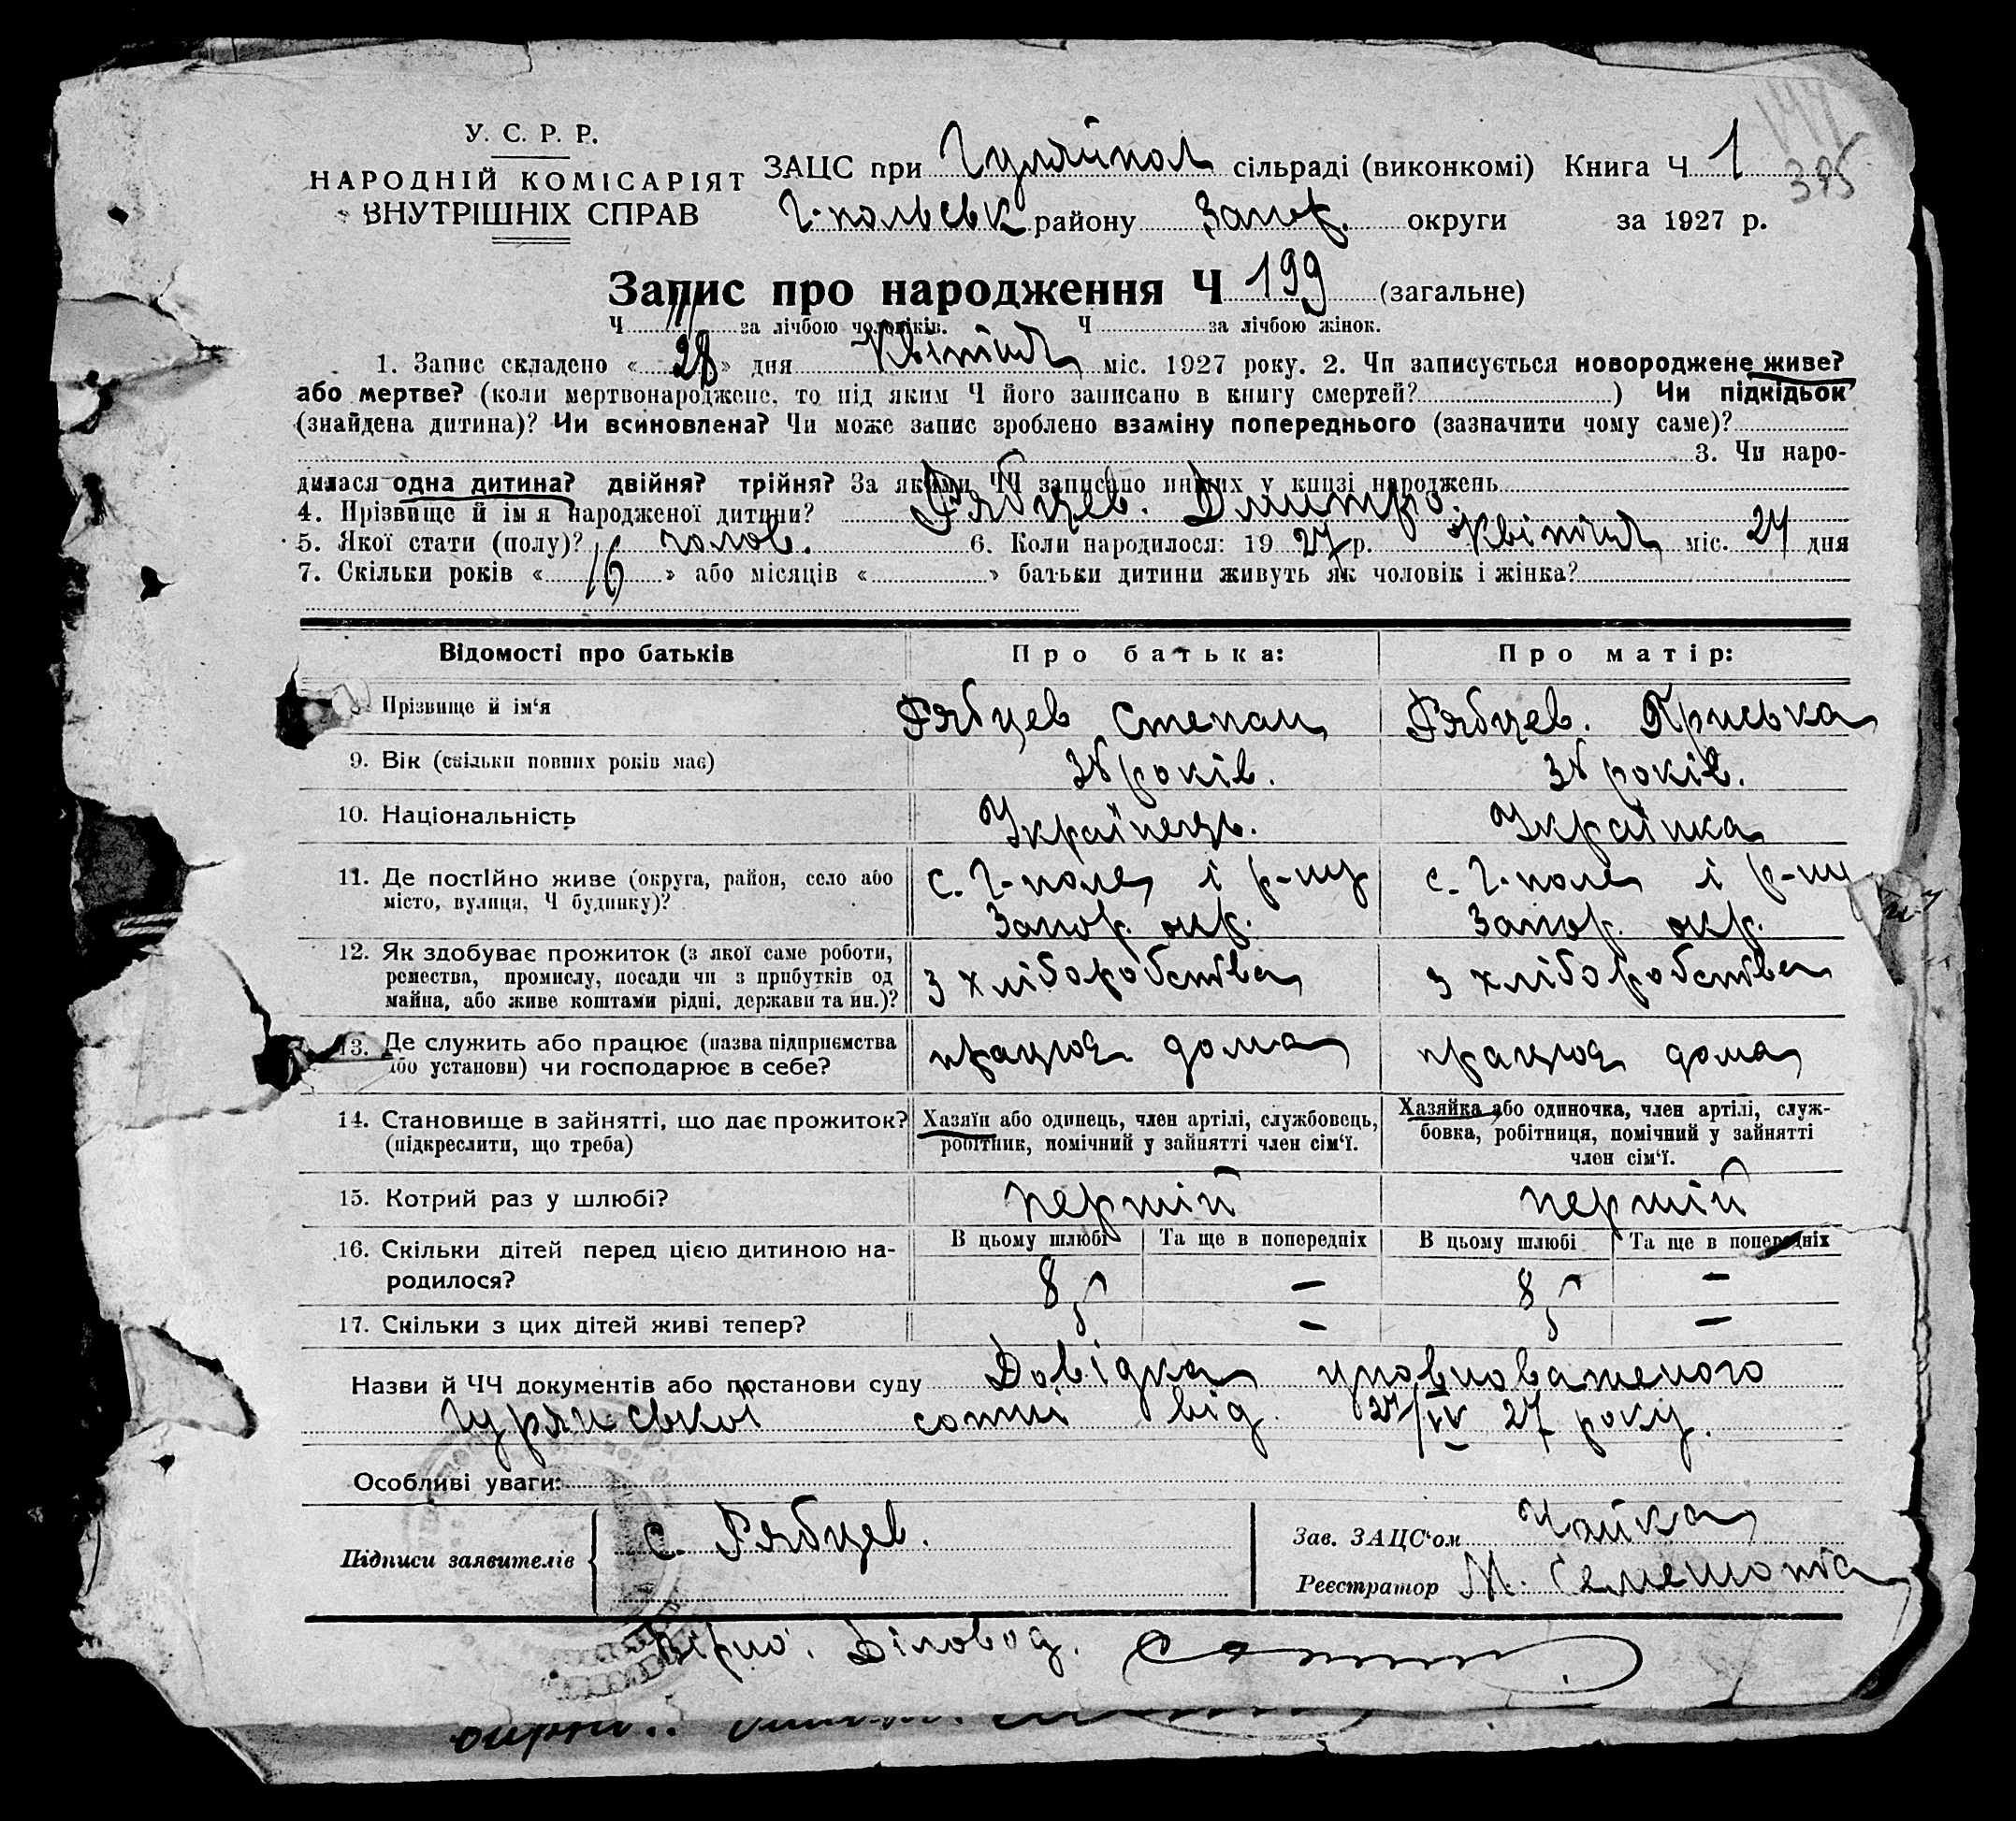 У. С. Р. Р.
НАРОДНІЙ КОМІСАРІЯТ
ВНУТРІШНІХ СПРАВ
ЗАЦС при Гуляйпол сільраді (виконкомі) Книга Ч 1
395
Г-польськ району Запор. округи за 1927 р.
Запис про народження Ч 199 (загальне)
Ч за лічбою чоловіків. Ч за лічбою жінок.
1. Запис складено « 28 » дня Квітня міс. 1927 року. 2. Чи записується новороджене живе?
або мертве? (коли мертвонароджене, то під яким Ч його записано в книгу смертей? ) Чи підкідьок
(знайдена дитина)? Чи всиновлена? Чи може запис зроблено взаміну попереднього (зазначити чому саме)?
3. Чи наро-
дилася одна дитина? двійня? трійня? За якими ЧЧ записано инших у книзі народжень
4. Прізвище й ім я народженої дитини? Рябцев. Дмитро.
5. Якої стати (полу)? чолов. 6. Коли народилося: 19 27 р. Квітня міс. 24 дня
7. Скільки років « 16 » або місяців « » батьки дитини живуть як чоловік і жінка?
Відомості про батьків Про батька: Про матір:
Прізвище й ім‘я Рябцев Степан Рябцев. Приська
9. Вік (скільки повних років має) 38 років. 38 років.
10. Національність Українець. Українка
11. Де постійно живе (округа, район, село або с. Г-поле і р-ну с. Г-поле і р-ну
місто, вулиця, Ч будинку)? Запор. окр. Запор. окр.
12. Як здобуває прожиток (з якої саме роботи,
ремества, промислу, посади чи з прибутків од з хліборобства з хліборобства
майна, або живе коштами рідні, держави та ин.)?
13. Де служить або працює (назва підприємства працює дома працює дома
або установи) чи господарює в себе?
14. Становище в зайнятті, що дає прожиток? Хазяїн або одинець, член артілі, службовець, Хазяйка або одиночка, член артілі, служ-
(підкреслити, що треба) робітник, помічний у зайнятті член сім‘ї. бовка, робітниця, помічний у зайнятті
член сім‘ї.
15. Котрий раз у шлюбі? перший перший
16. Скільки дітей перед цією дитиною на- В цьому шлюбі Та ще в попередніх В цьому шлюбі Та ще в попередніх
родилося? 8 — 8 —
17. Скільки з цих дітей живі тепер? 5 — 5 —
Назви й ЧЧ документів або постанови суду Довідка уповноваженого
сотні від 27/IV 27 року.
Особливі уваги:
Підписи заявителів С. Рябцев.
Зав. ЗАЦС‘ом Чайка
Реєстратор М. Семешота
Вірно: Діловод.